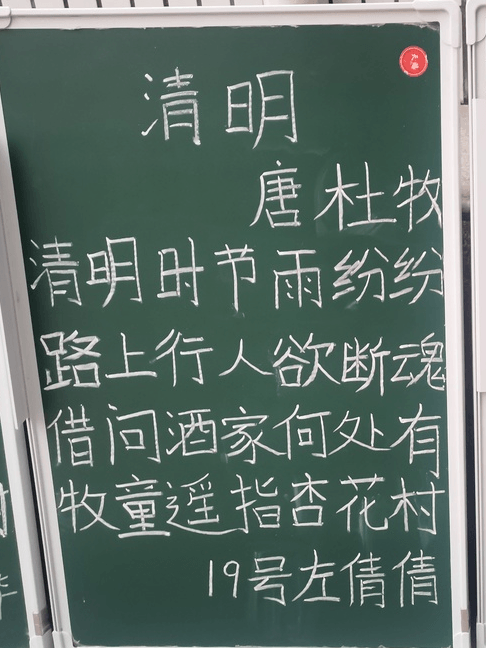 清明
唐 杜牧
清明时节雨纷纷
路上行人欲断魂
借问酒家何处有
牧童遥指杏花村
19号左倩倩